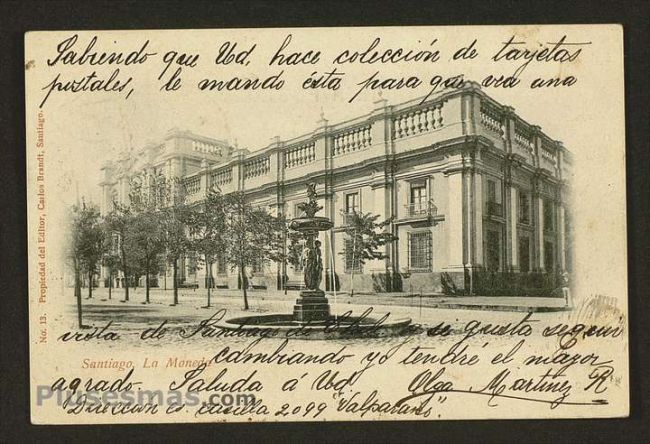 Sabiendo que Ud, hace colección de tarjetas
postales, le mando ésta para que vea una
vista de Santiago de Chile y si gusta seguir
cambiando yo tendré el mayor
agrado. Saluda á Ud. Olga Martinez R
Dirección es. casilla 2099 "Valparaiso".
Santiago, La Moneda
No. 13. Propiedad del Editor, Carlos Brandt, Santiago.
Plusesmas.com